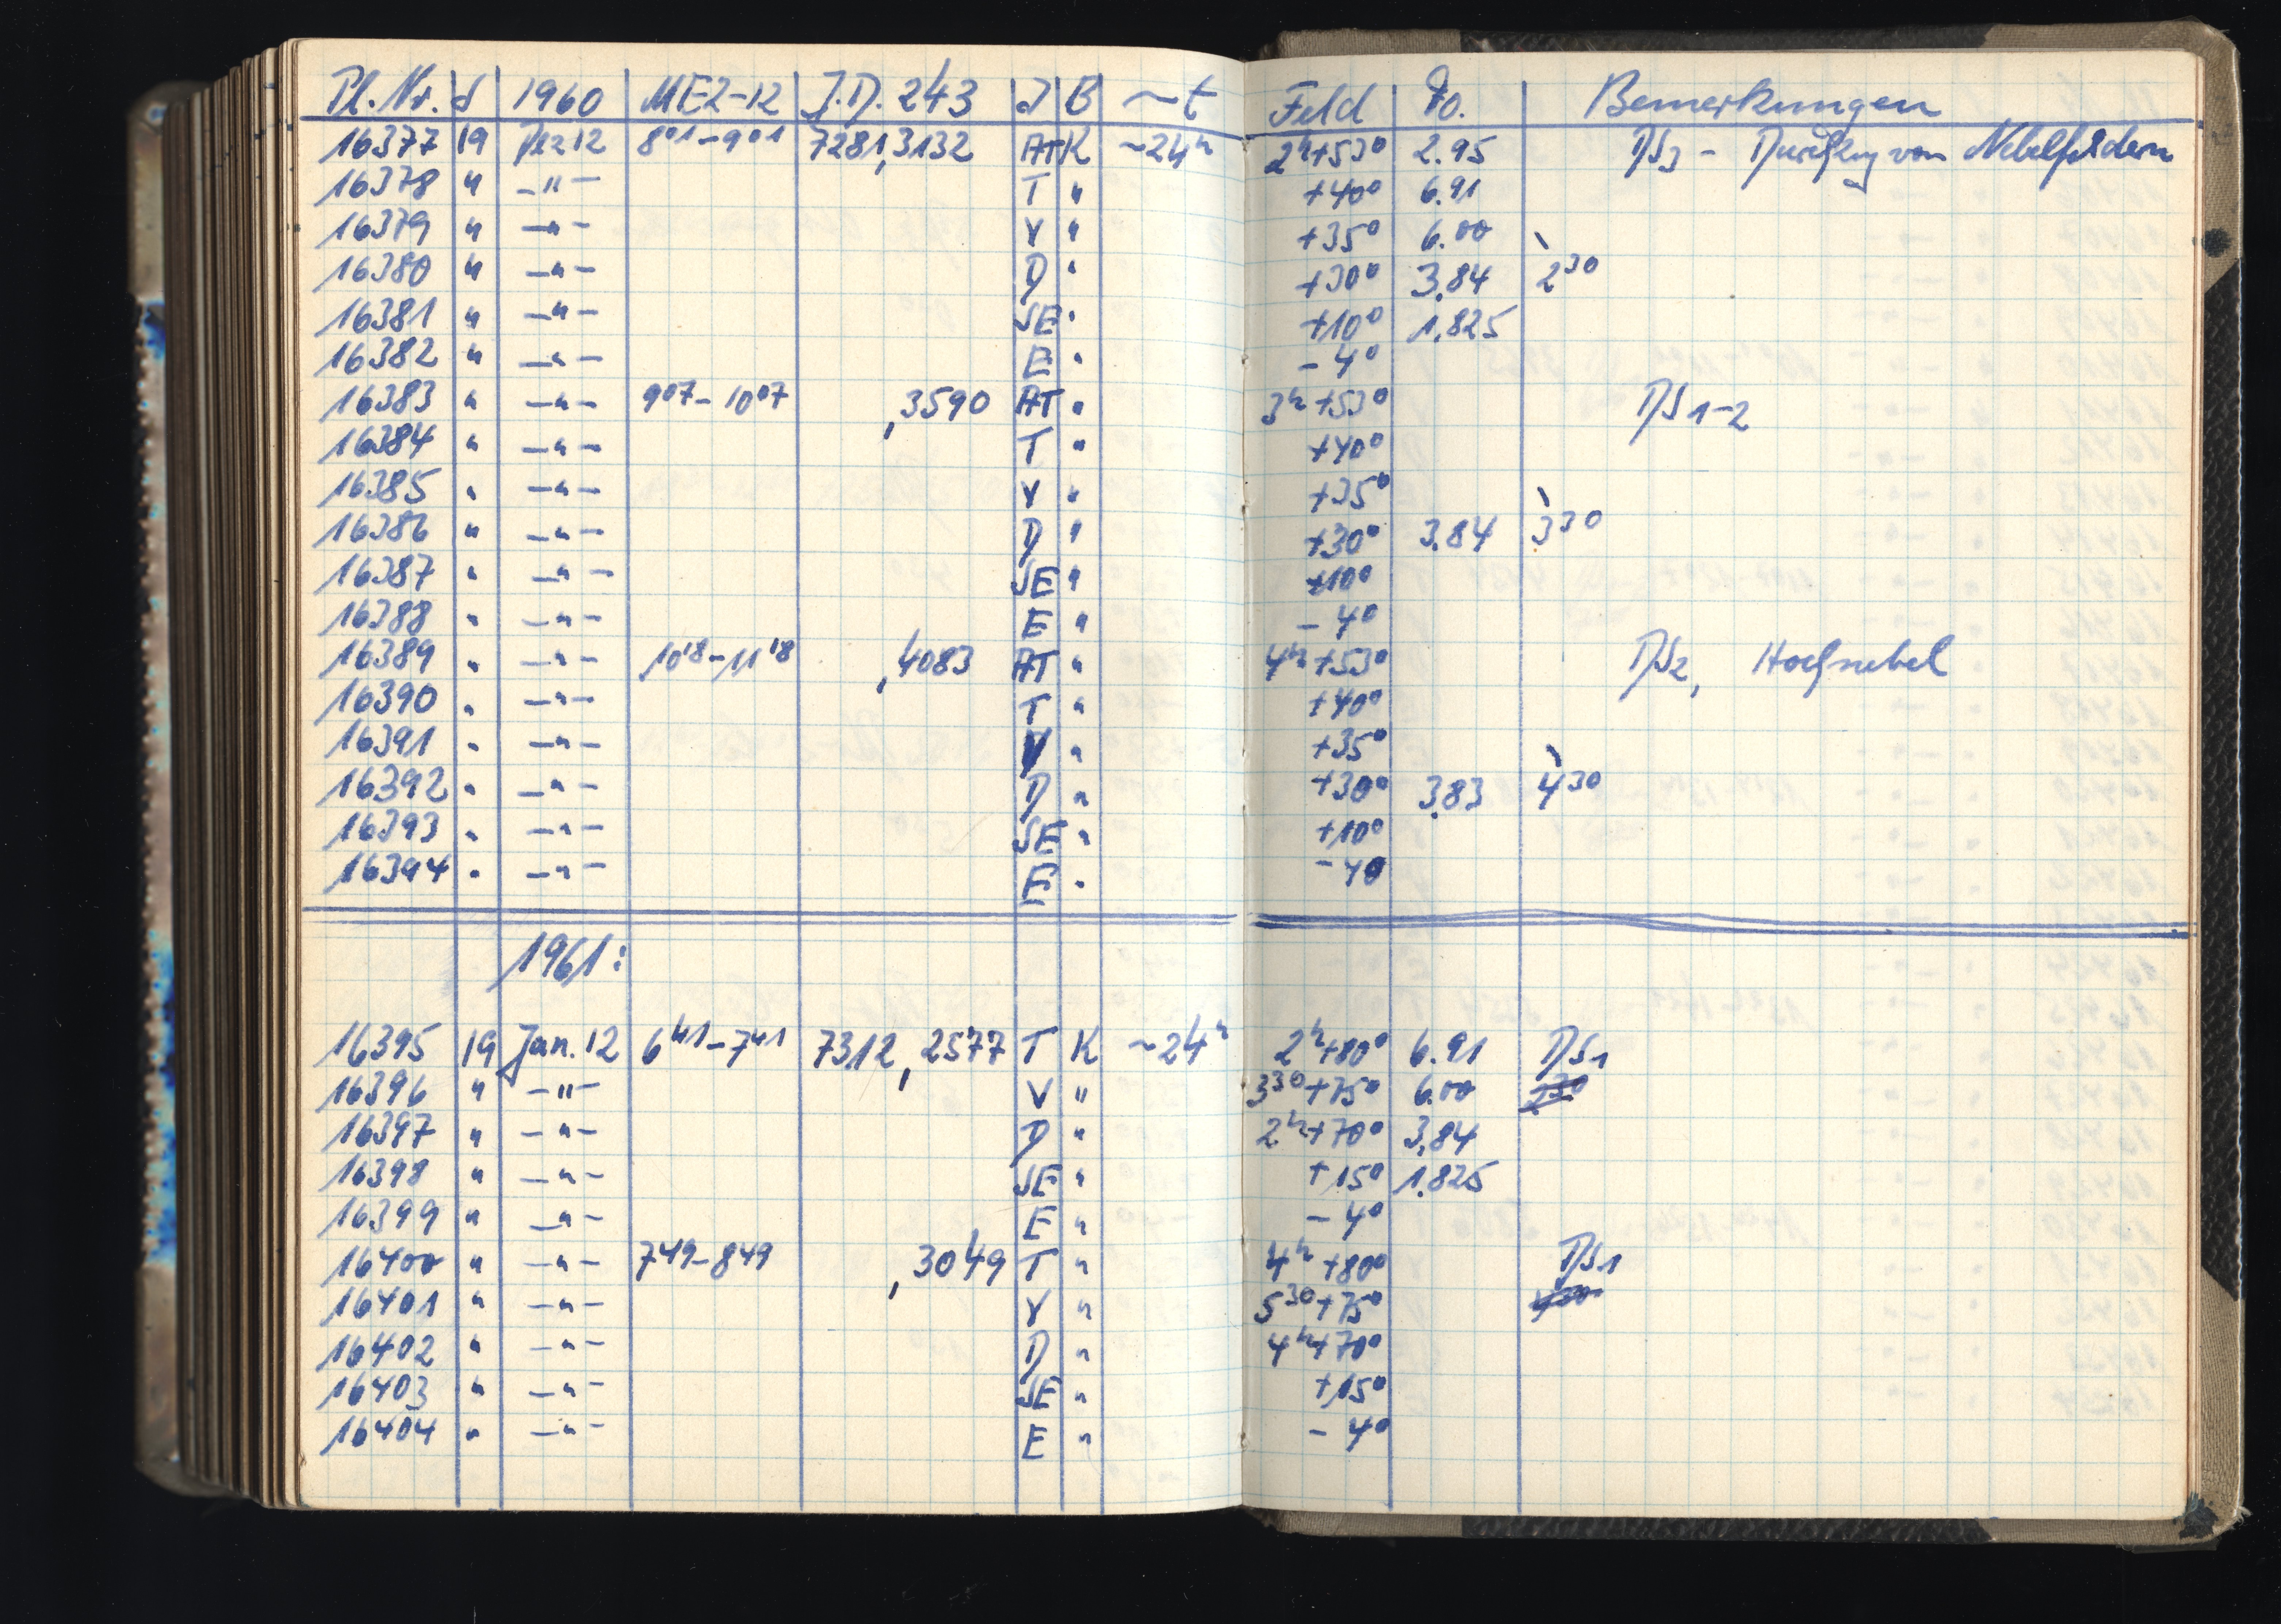 Pl. Nr. d 1960 MEZ-12 J.D. 243 J B ~t Feld Fo. Bemerkungen
16377 19 Dez 12 8⁰¹-9⁰¹ 7281,3132 AT K ~24ʰ 2ʰ+53⁰ 2.95 DS3 - Durchzug von Nebelfeldern
16378 " -"- T " +40⁰ 6.91
16379 " -"- V " +35⁰ 6.00
16380 " -"- D " +30⁰ 3.84 2³⁰
16381 " -"- SE " +10⁰ 1.825
16382 " -"- E " -4⁰
16383 " -"- 9⁰⁷-10⁰⁷ ,3590 AT " 3ʰ+53⁰ DS 1-2
16384 " -"- T " +40⁰
16385 " -"- V " +35⁰
16386 " -"- D " +30⁰ 3.84 3³⁰
16387 " -"- SE " +10⁰
16388 " -"- E " -4⁰
16389 " -"- 10¹⁸-11¹⁸ ,4083 AT " 4ʰ+53⁰ DS2, Hochnebel
16390 " -"- T " +40⁰
16391 " -"- V " +35⁰
16392 " -"- D " +30⁰ 3.83 4³⁰
16393 " -"- SE " +10⁰
16394 " -"- E " -4⁰
1961:
16395 19 Jan. 12 6⁴¹-7⁴¹ 7312,2577 T K ~24ʰ 2ʰ+80⁰ 6.91 DS1
16396 " -"- V " 3³⁰+75⁰ 6.00
16397 " -"- D " 2ʰ+70⁰ 3.84
16398 " -"- SE " +15⁰ 1.825
16399 " -"- E " -4⁰
16400 " -"- 7⁴⁹-8⁴⁹ ,3049 T " 4ʰ+80⁰ DS1
16401 " -"- V " 5³⁰+75⁰
16402 " -"- D " 4ʰ+70⁰
16403 " -"- SE " +15⁰
16404 " -"- E " -4⁰